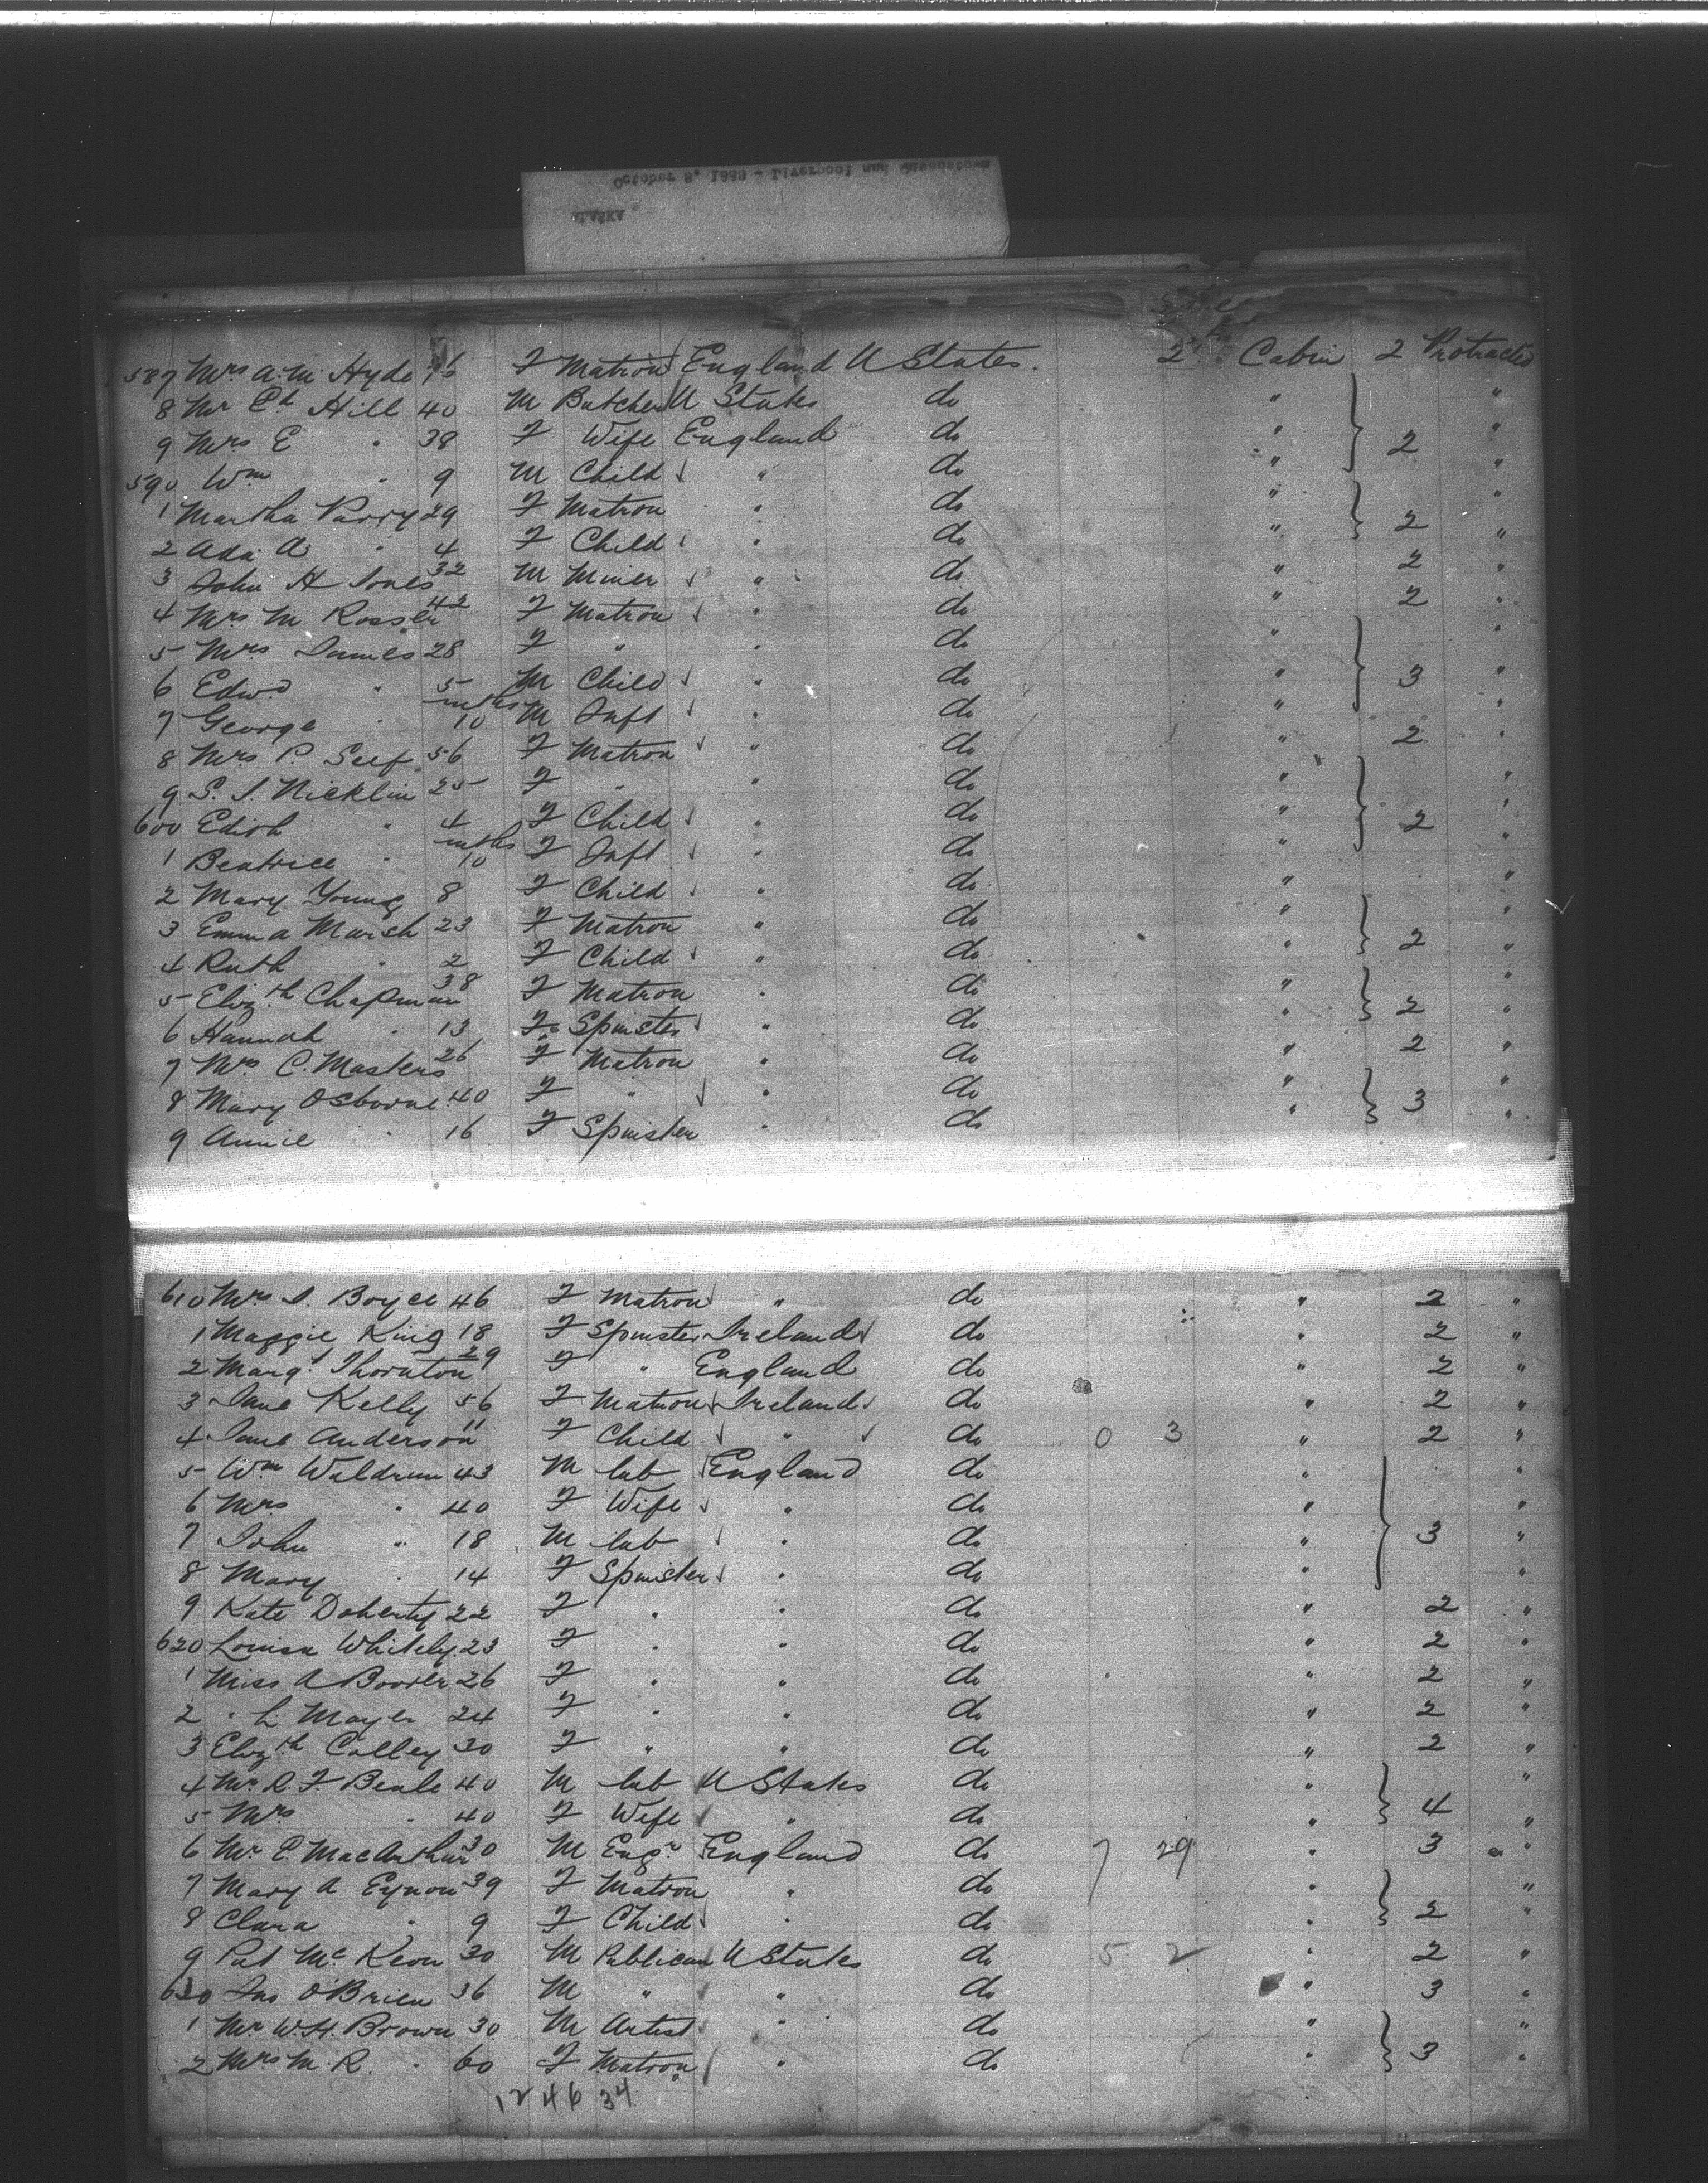 October 8, 1888 - Liverpool and Queenstown
ALASKA
587 Mrs A. M. Hyde F Matron England U States. 2nd Cabin 2 Protracted
8 Mr Ed Hill 40 M Butcher U States do "
9 Mrs E " 38 F Wife England do " 2 "
590 Wm " 9 M Child " do " "
1 Martha Parry 29 F Matron " do " "
2 Ada A " 4 F Child " do " 2 "
3 John H Jones 32 M Miner " do " 2 "
4 Mrs M Rosser 42 F Matron " do " 2 "
5 Mrs James 28 F " " do " "
6 Edwd " 5 M Child " do " 3 "
7 George " mths 10 M Inft " do " "
8 Mrs P. Seef 56 F Matron " do " 2 "
9 S. J. Nicklin 25 F " " do " "
600 Edith " 4 F Child " do " 2 "
1 Beatrice " mths 10 F Inft " do " "
2 Mary Young 8 F Child " do " "
3 Emma March 23 F Matron " do " "
4 Ruth " 2 F Child " do " 2 "
5 Elizth Chapman 38 F Matron " do " "
6 Hannah " 13 F Spinster " do " 2 "
7 Mrs C. Masters 26 F Matron " do " 2 "
8 Mary Osborne 40 F " " do " 3 "
9 Annie " 16 F Spinster " do " "
610 Mrs J. Boyce 46 F Matron " do " 2 "
1 Maggie King 18 F Spinster Ireland do " 2 "
2 Margt Thornton 29 F " England do " 2 "
3 Jane Kelly 56 F Matron Ireland do " 2 "
4 Jane Anderson 11 F Child " do 0 3 " 2 "
5 Wm Waldrum 43 M lab England do " "
6 Mrs " 40 F Wife " do " "
7 John " 18 M lab " do " 3 "
8 Mary " 14 F Spinster " do " "
9 Kate Doherty 22 F " " do " 2 "
620 Louisa Whitely 23 F " " do " 2 "
1 Miss A 26 F " " do " 2 "
2 " L Mayer 24 F " " do " 2 "
3 Elizth Colley 30 F " " do " 2 "
4 Mr R. F. Beale 40 M lab U States do " "
5 Mrs " 40 F Wife " do " 4 "
6 Mr P. MacArthur 30 M Engr England do 7 29 " 3 "
7 Mary A Eynon 39 F Matron " do " "
8 Clara " 9 F Child " do " 2 "
9 Pat McKeon 30 M Publican U States do 5 2 " 2 "
630 Jas O'Brien 36 M " " do " 3 "
1 Mr W. H. Brown 30 M Artist " do " "
2 Mrs M. R. " 60 F Matron " do " 3 "
12 46 34